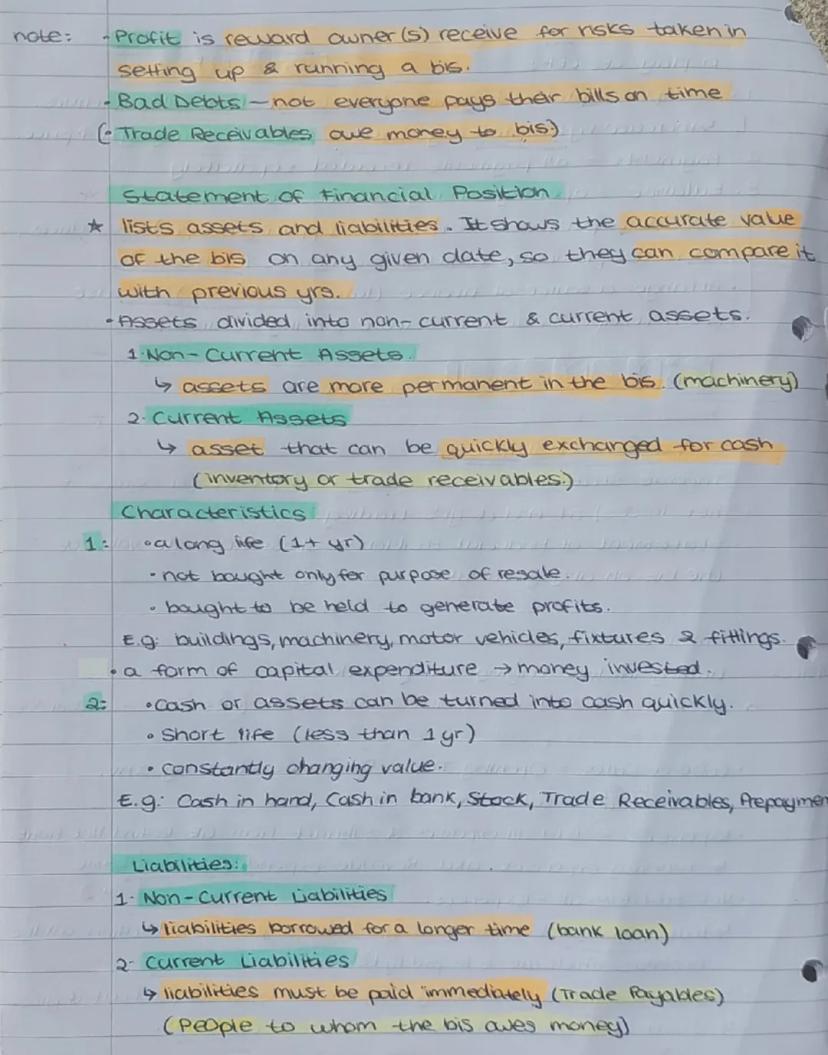 note: - Profit is reward owner(s) receive for risks taken in
setting up & running a bis.
- Bad Debts - not everyone pays their bills on time
(- Trade Receivables owe money to bis)
Statement of Financial Position
★ lists assets and liabilities. It shows the accurate value
of the bis on any given date, so they can compare it
with previous yrs.
- Assets divided into non-current & current assets.
1. Non-Current Assets.
↳ assets are more permanent in the bis. (machinery)
2. Current Assets
↳ asset that can be quickly exchanged for cash
(inventory or trade receivables.)
Characteristics
1: • a long life (1+ yr)
• not bought only for purpose of resale.
• bought to be held to generate profits.
E.g: buildings, machinery, motor vehicles, fixtures & fittings.
• a form of capital expenditure → money invested.
2: • Cash or assets can be turned into cash quickly.
• Short life (less than 1 yr)
• constantly changing value.
E.g: Cash in hand, Cash in bank, Stock, Trade Receivables, Prepaymen
Liabilities:
1. Non-Current Liabilities
↳ liabilities borrowed for a longer time (bank loan)
2. Current Liabilities
↳ liabilities must be paid immediately (Trade Payables)
(People to whom the bis owes money)